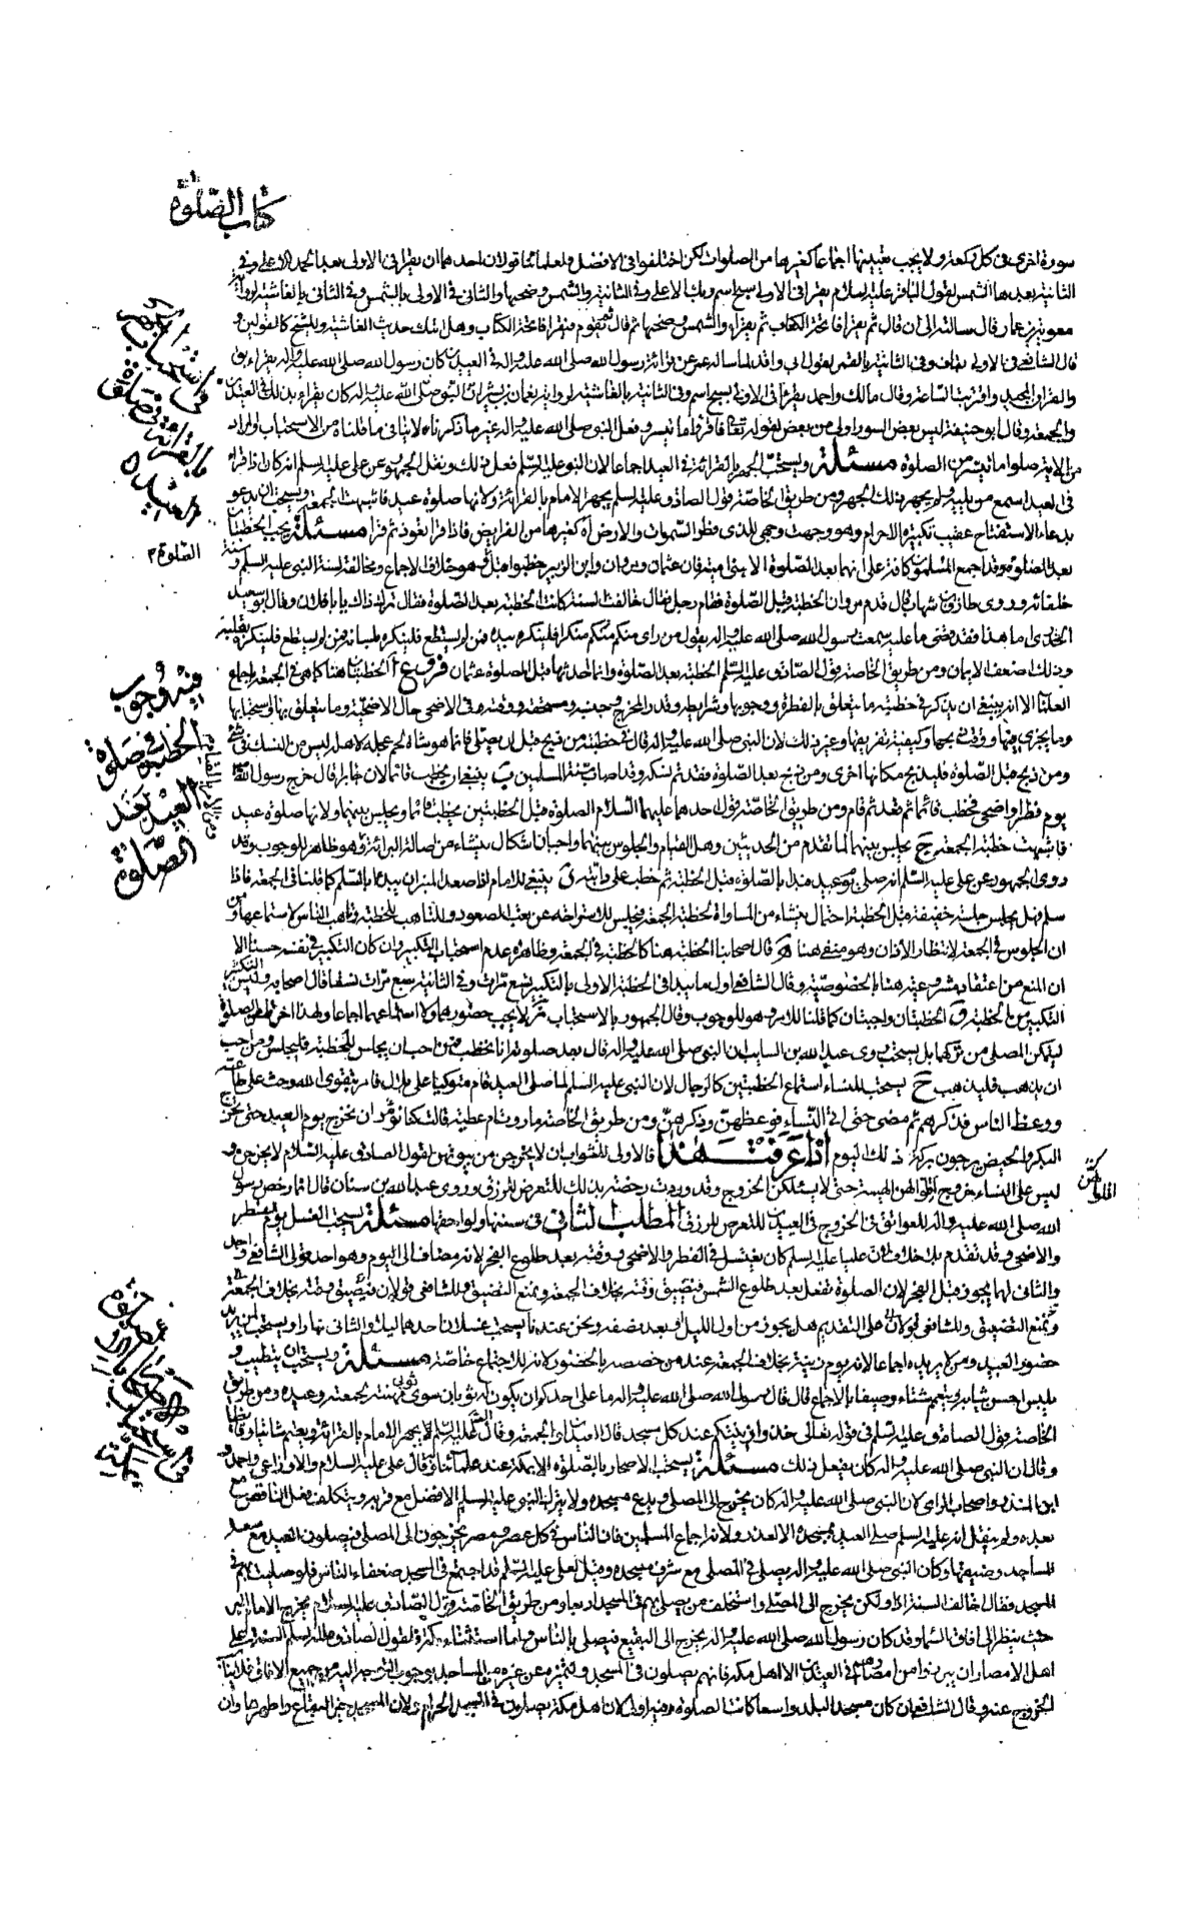 كتاب الصلوة
سورة اخرى فى كل ركعة ولا يجب تعيينها اجماعا كغيرها من الصلوات لكن اختلفوا فى الافضل ولعلمائنا قولان احدهما ان يقرا فى الاولى بعد الحمد الاعلى وفى
الثانية بعدها الشمس لقول الباقر عليه السلام يقرا فى الاولى سبح اسم ربك الاعلى وفى الثانية والشمس وضحيها والثانى فى الاولى بالشمس وفى الثانى بالغاشية لرواية
معوية بن عمار قال سالته الى ان قال ثم يقرا فاتحة الكتاب ثم يقراء والشمس وضحيها ثم قال ثم يقوم فيقرا فاتحة الكتاب وهل اتيك حديث الغاشية وللشيخ كالقولين و
قال الشافعى فى الاولى بقاف وفى الثانية بالقمر لقول ابى واقد لما ساله عمر عن قرائة رسول الله صلى الله عليه واله فى العيدين كان رسول الله صلى الله عليه واله يقراء بق
والقران المجيد واقتربت الساعة وقال مالك واحمد يقرا فى الاولى بسبح اسم وفى الثانية بالغاشية لرواية نعمان بن بشير ان النبى صلى الله عليه واله كان يقراء بذلك فى العيدين
والجمعة وقال ابو حنيفة ليس بعض السور اولى من بعض لقوله تعالى فاقرؤا ما تيسر وفعل النبى صلى الله عليه واله غير ما ذكرناه لا ينافى ما قلناه من الاستحباب والمراد
من الاية صلوا ما تيسر من الصلوة مسئلة ويستحب الجهر بالقرائة فى العيد اجماعا لان النبى عليه السلم فعل ذلك ونقل الجمهور عن على عليه السلم انه كان اذا قرا
فى العيد اسمع من يليه ولم يجهر ذلك الجهر ومن طريق الخاصة قول الصادق عليه السلم يجهر الامام بالقرائة ولانها صلوة عيد فاشبهت الجمعة ويستحب ان يدعو
بدعاء الاستفتاح عقيب تكبيرة الاحرام وهو وجهت وجهى للذى فطر السموات والارض اه كغيرها من الفرايض فاذا قرا تعوذ ثم قرا مسئلة يجب الخطبتان
بعد الصلوة وقد اجمع المسلمون كافة على انهما بعد الصلوة الا بنى امية فان عثمان ومروان وابن الزبير خطبوا قبل وهو خلاف الاجماع ومخالفة لسنة النبى عليه السلم و
خلفائه وروى طارق بن شهاب قال قدم مروان الخطبة قبل الصلوة فقام رجل فقال خالفت السنة كانت الخطبة بعد الصلوة فقال ترك ذاك يابا فلان وقال ابو سعيد
الخدرى اما هذا فقد قضى ما عليه سمعت رسول الله صلى الله عليه واله يقول من راى منكم منكرا فلينكره بيده فمن لم يستطع فلينكره بلسانه فمن لم يستطع فلينكره بقلبه
وذلك اضعف الايمان ومن طريق الخاصة قول الصادق عليه السلم الخطبة بعد الصلوة وانما احدثها قبل الصلوة عثمان فروع ا الخطبتان هنا كما هى فى الجمعة اجماع
العلما الا انه ينبغى ان يذكر فى خطبته ما يتعلق بالفطرة ووجوبها وشرايطه وقدر المخرج وجنسه ومستحقه ووقته وفى الاضحى حال الاضحية وما يتعلق بها استحبابها
وما يجزى فيها ووقت ذبحها وكيفية تفريقها وغير ذلك لان النبى صلى الله عليه واله قال فى خطبته من ذبح قبل ان يصلى فانما هو شاة لحم عجله لاهله ليس من النسك فى شىء
ومن ذبح قبل الصلوة فليذبح مكانها اخرى ومن ذبح بعد الصلوة فقد تم نسكه وقد اصاب سنة المسلمين ب ينبغى ان يخطب قائما لان جابرا قال خرج رسول الله
يوم فطر او اضحى فخطب قائما ثم قعد ثم قام ومن طريق الخاصة قول احدهما عليهما السلام الصلوة قبل الخطبتين يخطب قائما ويجلس بينهما ولانها صلوة عيد
فاشبهت خطبة الجمعة ج يجلس بينهما لما تقدم من الحديثين وهل القيام والجلوس بينهما واجبان اشكال ينشاء من اصالة البرائة وهو ظاهر للوجوب وقد
روى الجمهور عن على عليه السلام انه صلى يوم عيد فبدا بالصلوة قبل الخطبة ثم خطب على دابته د ينبغى للامام اذا صعد المنبر ان يبدء بالسلم كما قلنا فى الجمعة فاذا
سلم فهل يجلس جلسة خفيفة قبل الخطبة احتمال ينشاء من المساواة لخطبة الجمعة فيجلس للاستراحة عن تعب الصعود وللتاهب للخطبة وتاهب الناس لاستماعها ومن
ان الجلوس فى الجمعة لانتظار الاذان وهو منفى هنا ه قال اصحابنا الخطبة هنا كالخطبة فى الجمعة وظاهره عدم استحباب التكبير وان كان التكبير فى نفسه حسنا الا
ان المنع من اعتقاد مشروعيته هنا بالخصوصية وقال الشافعى اول ما يبدا فى الخطبة الاولى بالتكبير تسع مرات وفى الثانية سبع مرات نسقا قال اصحابه وليس التكبير
التكبير من الخطبة و الخطبتان واجبتان كما قلنا للامر وهو للوجوب وقال الجمهور بالاستحباب ز لا يجب حضورهما ولا استماعهما اجماعا ولهذا اخرتا عن الصلوة
ليتمكن المصلى من تركهما بل يستحب روى عبد الله بن السايب ان النبى صلى الله عليه واله قال بعد صلوته انا نخطب فمن احب ان يجلس للخطبة فليجلس ومن احب
ان يذهب فليذهب ح يستحب للنساء استماع الخطبتين كالرجال لان النبى عليه السلم لما صلى العيد قام متوكيا على بلال فامر بتقوى الله وحث على طاعته
ووعظ الناس فذكرهم ثم مضى حتى اتى النساء فوعظهن وذكرهن ومن طريق الخاصة ما روته ام عطية قالت كنا نؤمر ان نخرج يوم العيد حتى تخرج
البكر والحيض يرجون بركة ذلك اليوم اذا عرفت هذا فالاولى للشواب ان لا يخرجن من بيوتهن لقول الصادق عليه السلام لا يخرجن و
ليس على النساء خروج اقلوا لهن الهيئة حتى لا يسئلكن الخروج وقد وردت رخصة بذلك للتعرض للرزق وروى عبد الله بن سنان قال انما رخص رسول
الله صلى الله عليه واله للعواتق فى الخروج فى العيدين للتعرض للرزق المطلب الثانى فى سننها ولواحقها مسئلة يستحب الغسل يوم الفطر
والاضحى وقد تقدم بل خلاف لان عليا عليه السلم كان يغتسل فى الفطر والاضحى ووقته بعد طلوع الفجر لانه مضاف الى اليوم وهو احد قولى الشافعى واحد
والثانى لهما يجوز قبل الفجر لان الصلوة تفعل بعد طلوع الشمس فيضيق وقته بخلاف الجمعة ونمنع التضيق وللشافعى قولان فيضيق وقته بخلاف الجمعة
ونمنع التضيق وللشافعى قولان على التقديم هل يجوز من اول الليل او بعد نصفه ونحن عندنا يستحب غسلان احدهما ليلا والثانى نهارا ويستحب لمن يريد
حضور العيد ومن لا يريده اجماعا لانه يوم زينة بخلاف الجمعة عند من خصصه بالحضور لانه للاجتماع خاصة مسئلة ويستحب ان يتطيب و
يلبس احسن ثيابه ويتعمم شتاء وصيفا بالاجماع قال قال رسول الله صلى الله عليه واله ما على احدكم ان يكون له ثوبان سوى ثوبى مهنته لجمعته وعيده ومن طريق
الخاصة قول الصادق عليه السلم فى قوله تعالى خذوا زينتكم عند كل مسجد قال العيدان والجمعة وقال عليه السلم يجهر الامام بالقرائة ويعتم شاتيا وقايظا
وقال ان النبى صلى الله عليه واله كان يفعل ذلك مسئلة يستحب الاصحار بالصلوة الا بمكة عند علمائنا وقال على عليه السلام والاوزاعى واحمد و
ابن المنذر واصحاب الراى لان النبى صلى الله عليه واله كان يخرج الى المصلى ويدع مسجده ولا يترك النبى عليه السلم الافضل مع قربه ويتكلف فعل الناقص مع
بعده ولم ينقل انه عليه السلم صلى العيد بمسجده الا لعذر ولانه اجماع المسلمين فان الناس فى كل عصر ومصر يخرجون الى المصلى فيصلون العيد مع سعة
المساجد وضيقها وكان النبى صلى الله عليه واله يصلى فى المصلى مع شرف مسجده وقيل لعلى عليه السلم قد اجتمع فى المسجد ضعفاء الناس فلو صليت بهم فى
المسجد فقال اخالف السنة اذا ولكن يخرج الى المصلى واستخلف من يصلى بهم فى المسجد اربعا ومن طريق الخاصة قول الصادق عليه السلام يخرج الامام البر
حيث ينظر الى افاق السماء وقد كان رسول الله صلى الله عليه واله يخرج الى البقيع فيصلى بالناس واما استثناء مكة لقول الصادق عليه السلم السنة على
اهل الامصار ان يبرزوا من امصارهم فى العيدين الا اهل مكة فانهم يصلون فى المسجد ولتميزه عن غيره من المساجد بوجوب التوجه اليه من جميع الافاق فلا يناسب
الخروج عنه وقال الشافعى ان كان مسجد البلد واسعا كانت الصلوة فيه اولى لان اهل مكة يصلون فى المسجد الحرام ولان المسجد خير البقاع واطهرها وان
فى استحباب الجهر
بالقرائة فى صلوة
العيد
الصلوة م
فيه وجوب
الخطبة فى صلوة
العيد بعد
الصلوة
اقلوا لهن
فى استحباب الاصحار بالصلوة الا بمكة